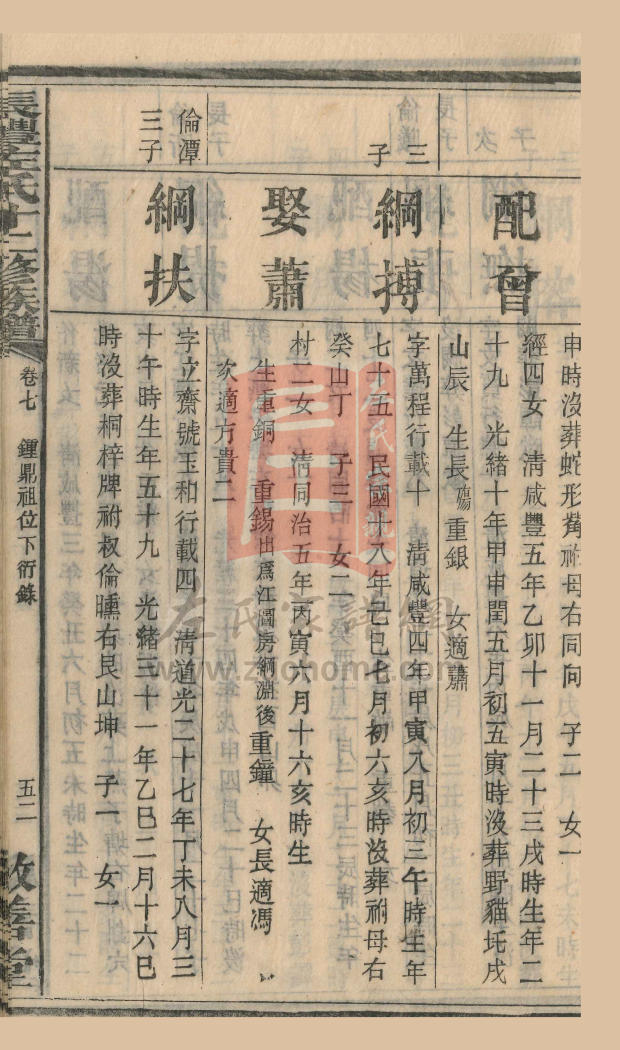 申時沒葬蛇形觜祔母右同向 子二 女一
配曾
經四女 清咸豐五年乙卯十一月二十三戌時生年二
十九 光緒十年甲申閏五月初五寅時沒葬野貓坉戌
山辰 生長殤重銀 女適蕭
三子
綱搏
字萬程行載十 清咸豐四年甲寅八月初三午時生年
七十五 民國十八年己巳七月初六亥時沒葬祔母右
癸山丁 子三 女二
娶蕭
村二女 清同治五年丙寅六月十六亥時生
生重銅 重錫出爲江圖房綱淵後重鐘 女長適馮
次適方貴二
倫潭三子
綱扶
字立齋號玉和行載四 清道光二十七年丁未八月三
十午時生年五十九 光緒三十一年乙巳二月十六巳
時沒葬桐梓牌祔叔倫曛右艮山坤 子一 女一
長豐左氏十二修族譜
卷七 鍾鼎祖位下衍錄
五二
敬善堂
左氏家譜網
www.zuohome.com